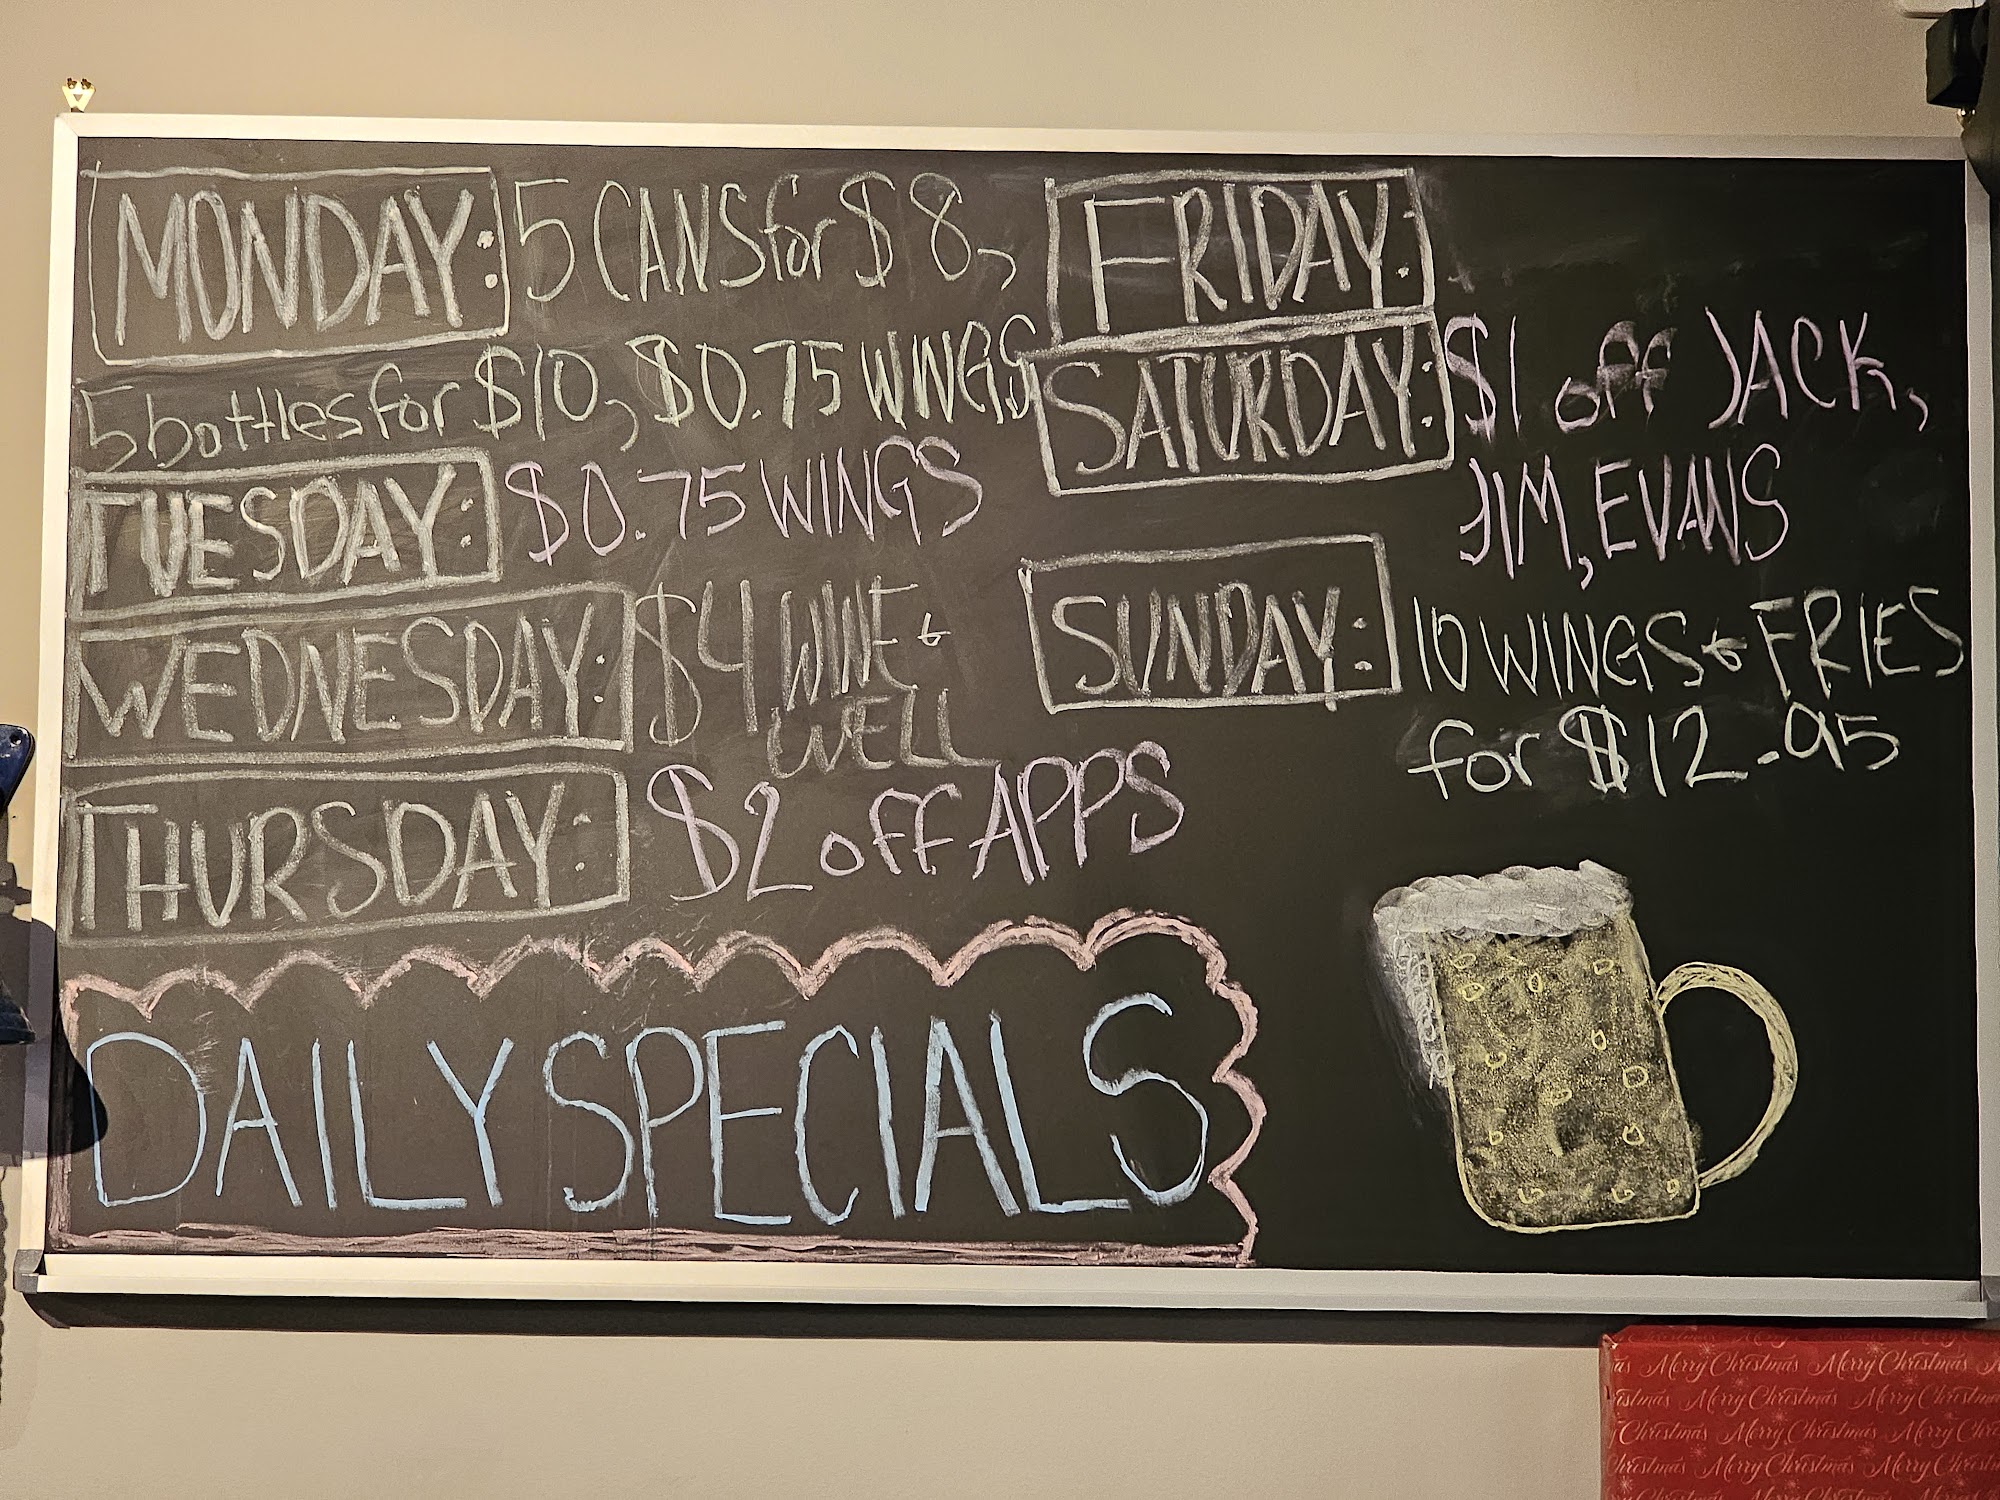 MONDAY: 5 CANS for $8,
5 bottles for $10, $0.75 WINGS
TUESDAY: $0.75 WINGS
WEDNESDAY: $4 WINE &
WELL
THURSDAY: $2 off APPS
FRIDAY:
SATURDAY: $1 off JACK,
JIM, EVANS
SUNDAY: 10 WINGS & FRIES
for $12.95
DAILY SPECIALS
Merry Christmas Merry Christmas
Merry Christmas Merry Christmas
Christmas Merry Christmas Merry
Christmas Merry Christmas Merry